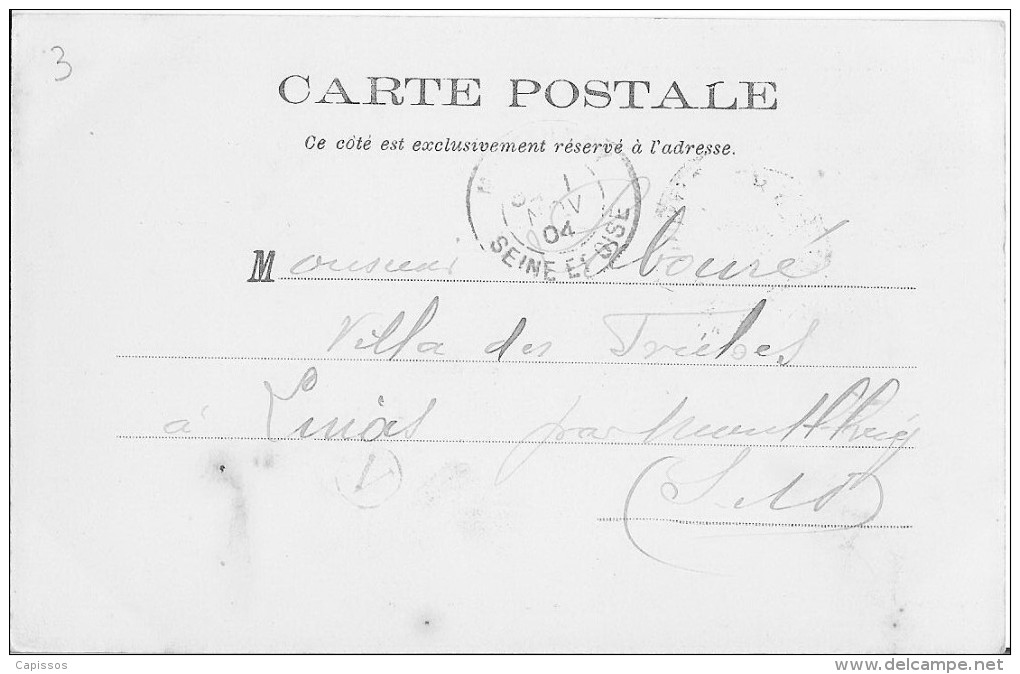 3
CARTE POSTALE
Ce côté est exclusivement réservé à l'adresse.
NOV
04
SEINE ET OISE
Monsieur
Villa des
à Linas par Montlhéry
(S et O)
Capissos
www.delcampe.net